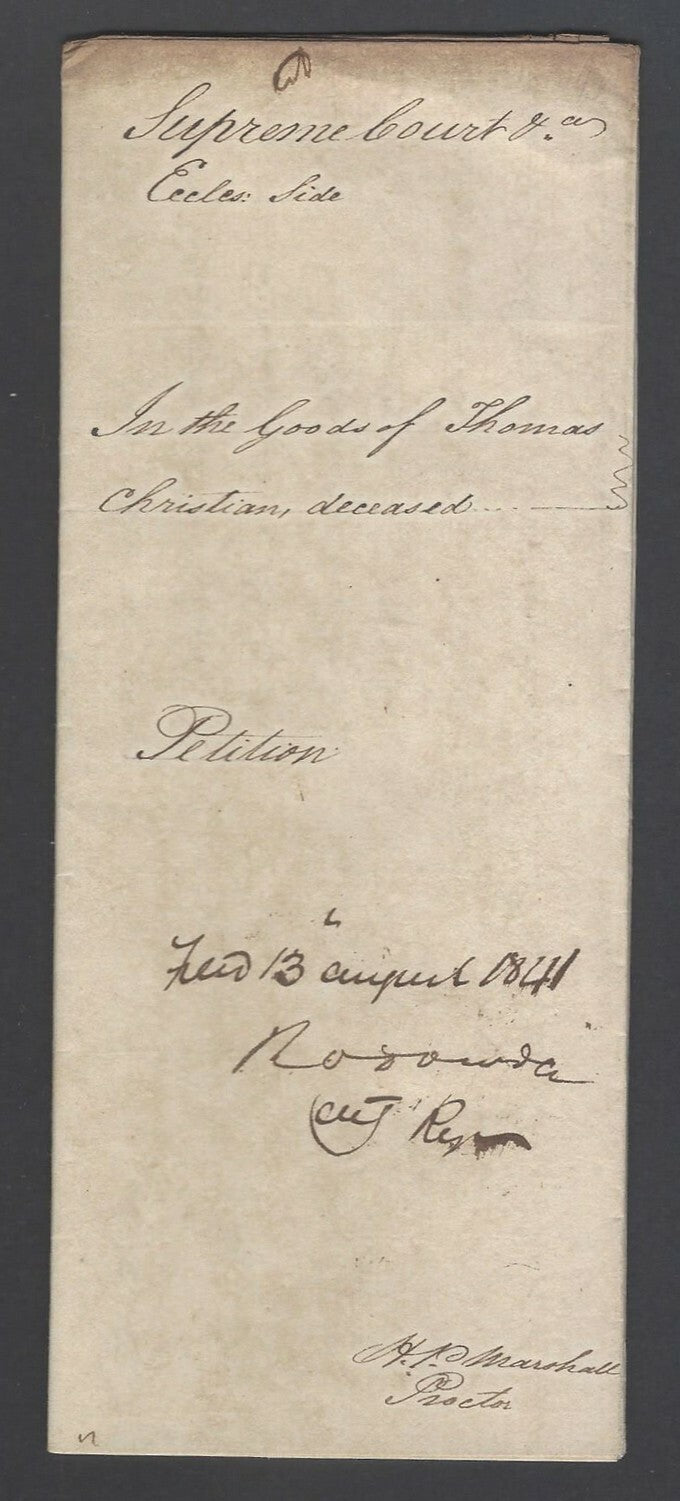 Supreme Court &.a
Eccles: Side
In the Goods of Thomas
Christian, deceased
Petition
13 august 1841
H. P. Marshall
Proctor